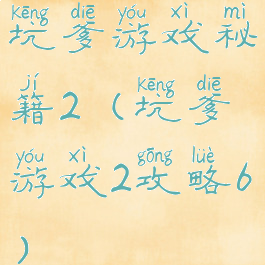 kēng diē yóu xì mì
坑爹游戏秘
jí kēng diē
籍2(坑爹
yóu xì gōng lüè
游戏2攻略6
)